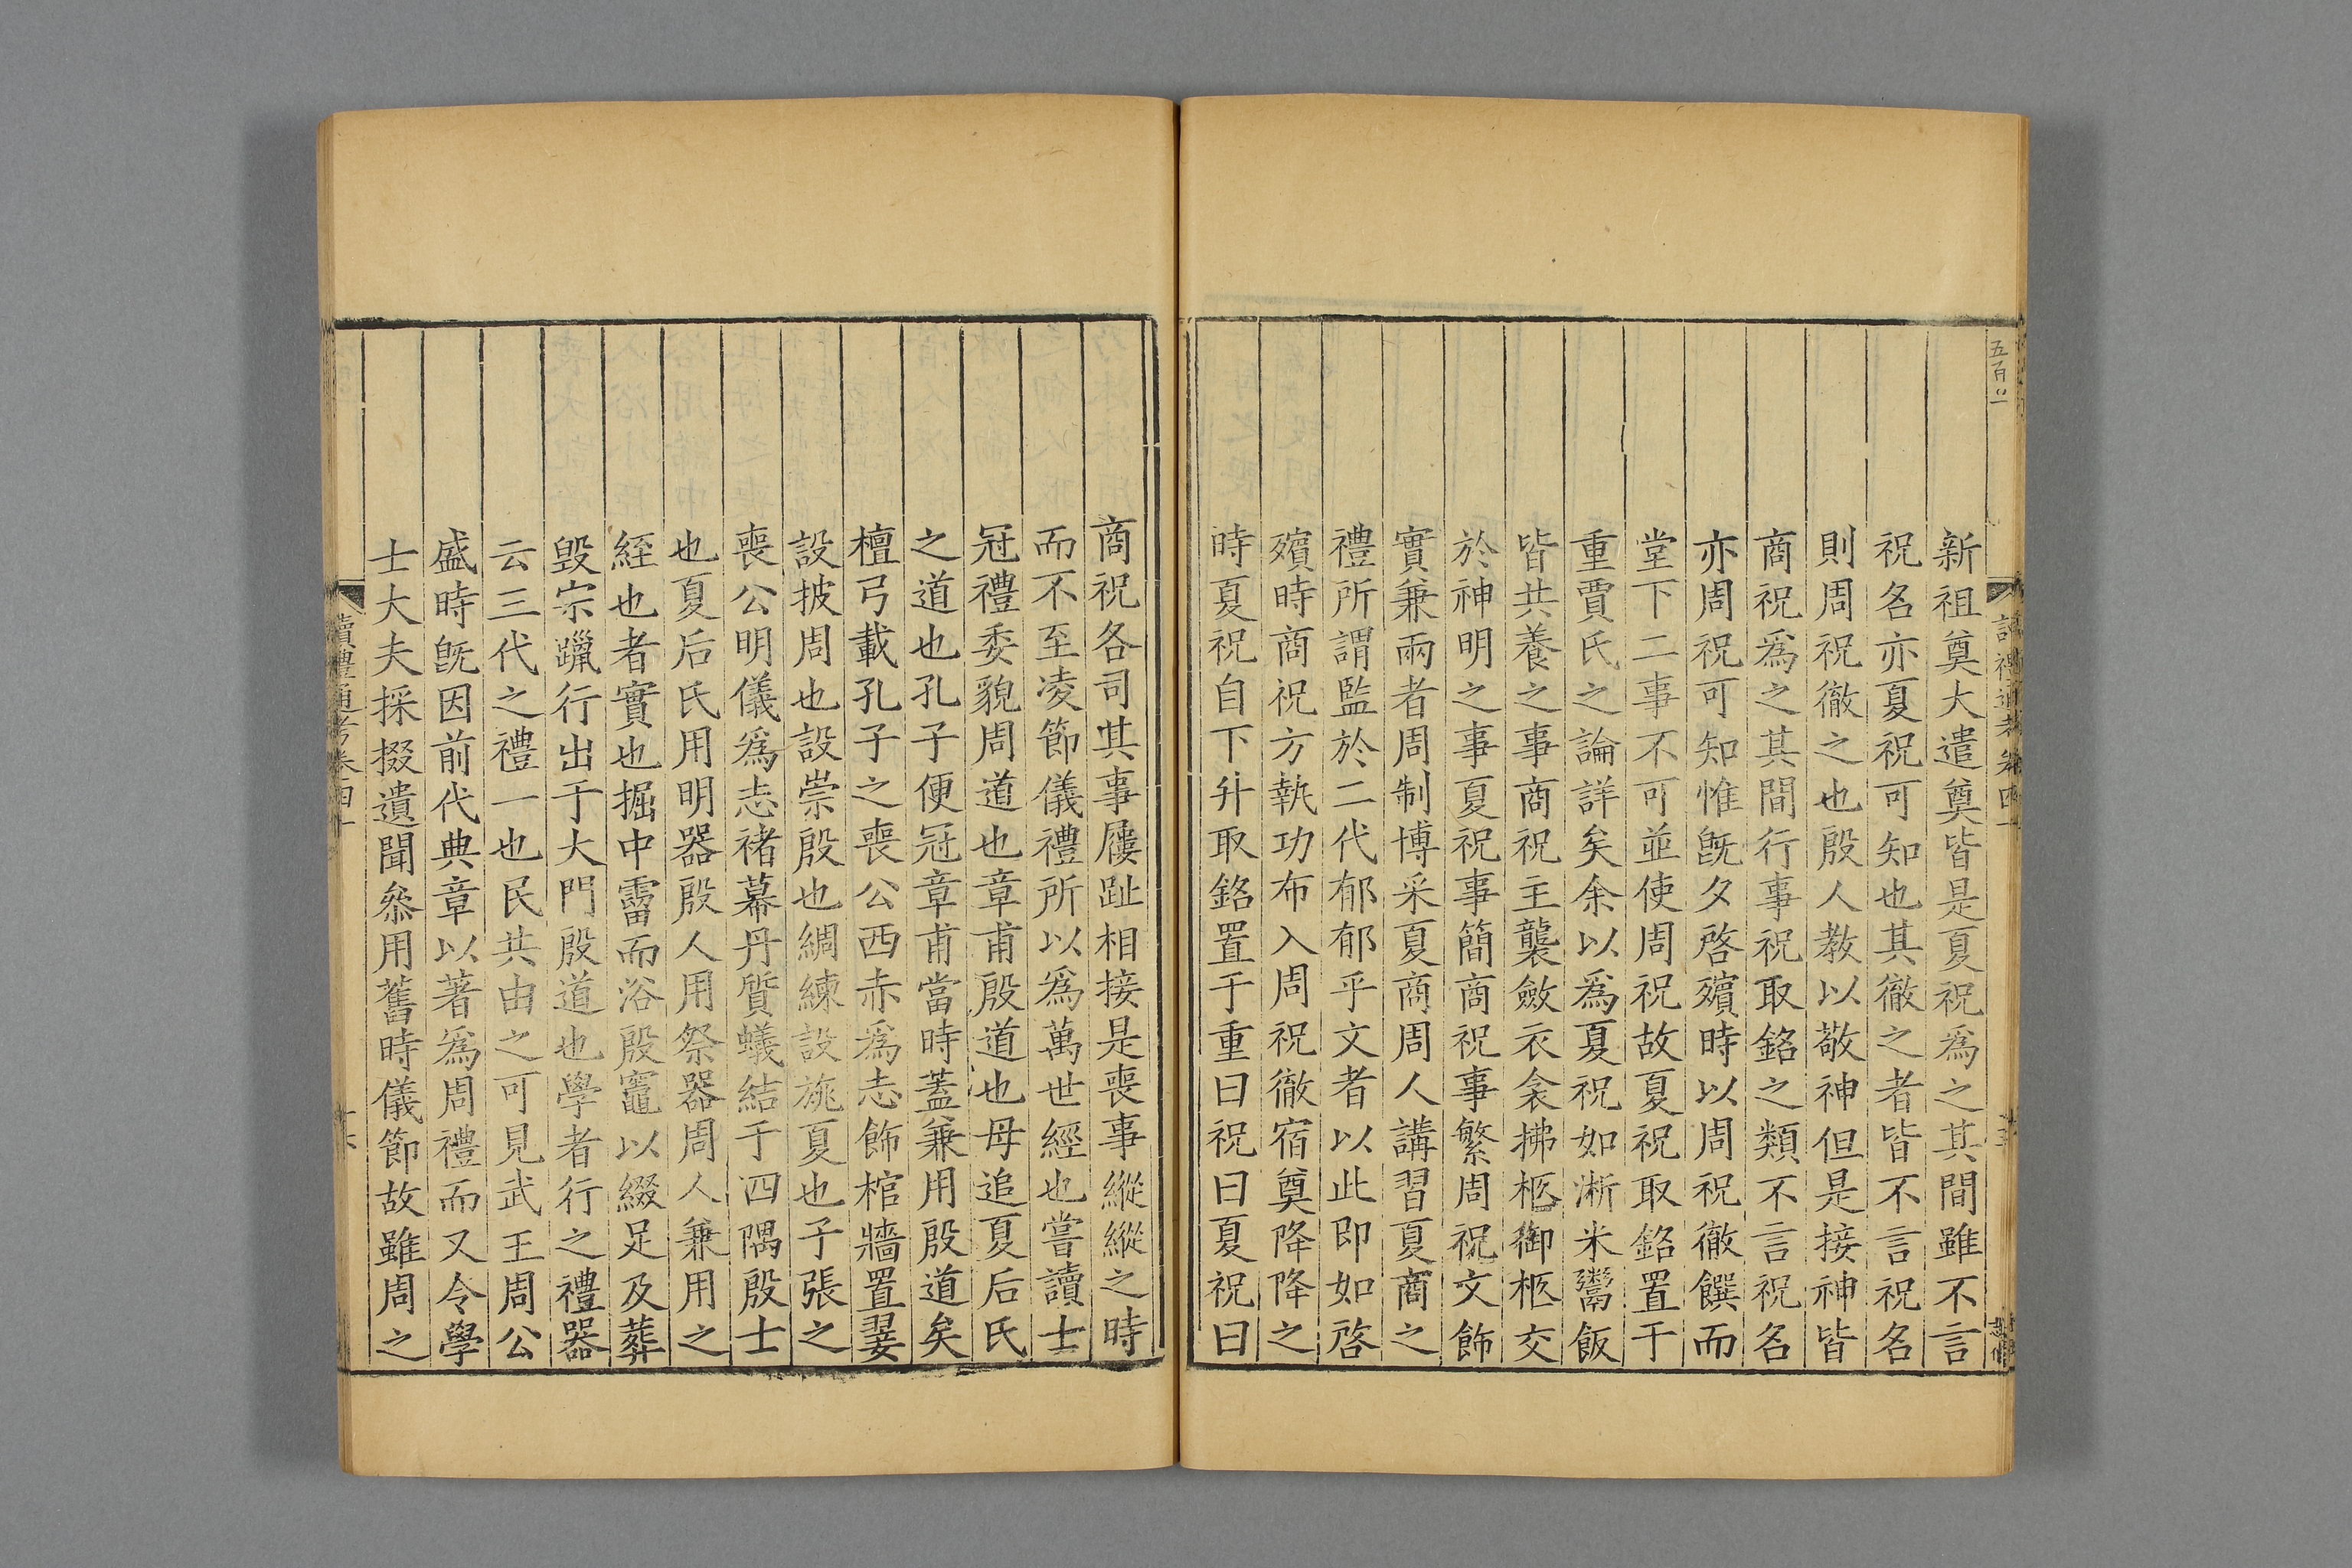 新祖奠大遣奠皆是夏祝爲之其間雖不言
祝名亦夏祝可知也其徹之者皆不言祝名
則周祝徹之也殷人教以敬神但是接神皆
商祝爲之其間行事祝取銘之類不言祝名
亦周祝可知惟旣夕啓殯時以周祝徹饌而
堂下二事不可並使周祝故夏祝取銘置于
重賈氏之論詳矣余以爲夏祝如淅米鬻飯
皆共養之事商祝主襲斂衣衾拂柩御柩交
於神明之事夏祝事簡商祝事繁周祝文飾
實兼兩者周制博采夏商周人講習夏商之
禮所謂監於二代郁郁乎文者以此即如啓
殯時商祝方執功布入周祝徹宿奠降降之
時夏祝自下升取銘置于重曰祝曰夏祝曰
商祝各司其事屨趾相接是喪事縱縱之時
而不至凌節儀禮所以爲萬世經也嘗讀士
冠禮委貌周道也章甫殷道也毋追夏后氏
之道也孔子便冠章甫當時蓋兼用殷道矣
檀弓載孔子之喪公西赤爲志飾棺牆置翣
設披周也設崇殷也綢練設旐夏也子張之
喪公明儀爲志褚幕丹質蟻結于四隅殷士
也夏后氏用明器殷人用祭器周人兼用之
絰也者實也掘中霤而浴殷竈以綴足及葬
毀宗躐行出于大門殷道也學者行之禮器
云三代之禮一也民共由之可見武王周公
盛時旣因前代典章以著爲周禮而又令學
士大夫採掇遺聞叅用舊時儀節故雖周之
讀禮通考卷四十